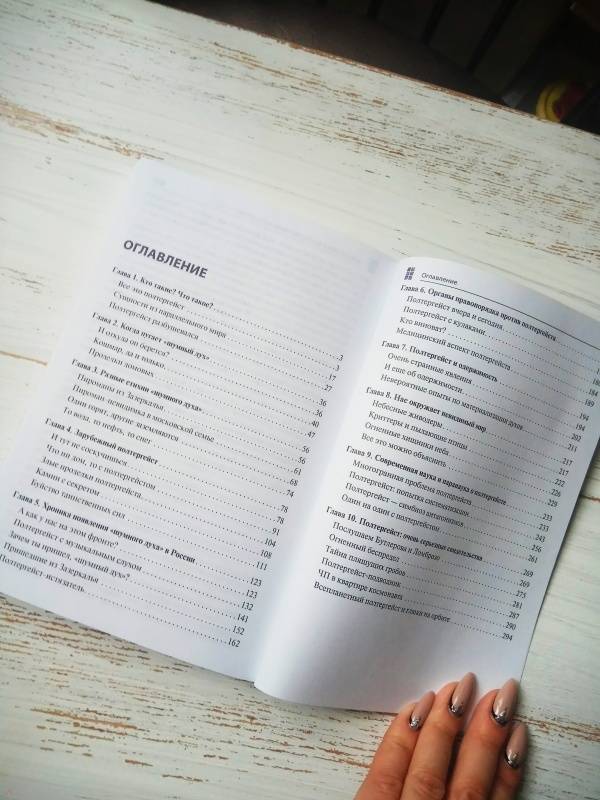 ОГЛАВЛЕНИЕ
Глава 1. Кто такие? Что такое? 3
Все это полтергейст 3
Сущности из параллельного мира 17
Полтергейст разбушевался 27
Глава 2. Когда пугает «шумный дух» 36
И откуда он берется? 36
Кошмар, да и только 40
Проделки домовых 47
Глава 3. Разные стихии «шумного духа» 56
Пироманы из Зазеркалья 56
Пироман-невидимка в московской семье 61
Одни горят, другие 68
То вода, то нефть, то снег 74
Глава 4. Зарубежный полтергейст 78
И тут не соскучишься 78
Что ни дом, то с полтергейстом 91
Злые проделки полтергейста 104
Камни с секретом 108
Буйство таинственных сил 111
Глава 5. Хроника появления «шумного духа» в России 123
А как у нас на этом фронте? 123
Полтергейст с музыкальным слухом 132
Зачем ты пришел, «шумный дух»? 141
Пришедшие из Зазеркалья 152
Полтергейст-истязатель 162
Оглавление
Глава 6. Органы правопорядка против полтергейста
Полтергейст вчера и сегодня
Полтергейст с кулаками
Кто виноват? 184
Медицинский аспект полтергейста 189
Глава 7. Полтергейст и одержимость 194
Очень странные явления 194
И еще об одержимости 202
Невероятные опыты по материализации духов 211
Глава 8. Нас окружает неведомый мир 217
Небесные живодеры 217
Криттеры и пылающие птицы 222
Огненные хищники неба 226
Все это можно объяснить 229
Глава 9. Современная наука и парнаука о полтергейсте 233
Многогранная проблема полтергейста 233
Полтергейст: попытка систематизации 243
Полтергейст — симбиоз антагонизмов 256
Один на один с полтергейстом 261
Глава 10. Полтергейст: очень серьезные свидетельства 269
Послушаем Бутлерова и Ломброзо 269
Огненный беспредел 275
Тайна пляшущих гробов 281
Полтергейст-подводник 287
ЧП в квартире космонавта 290
Всепланетный полтергейст и глюки на орбите 294